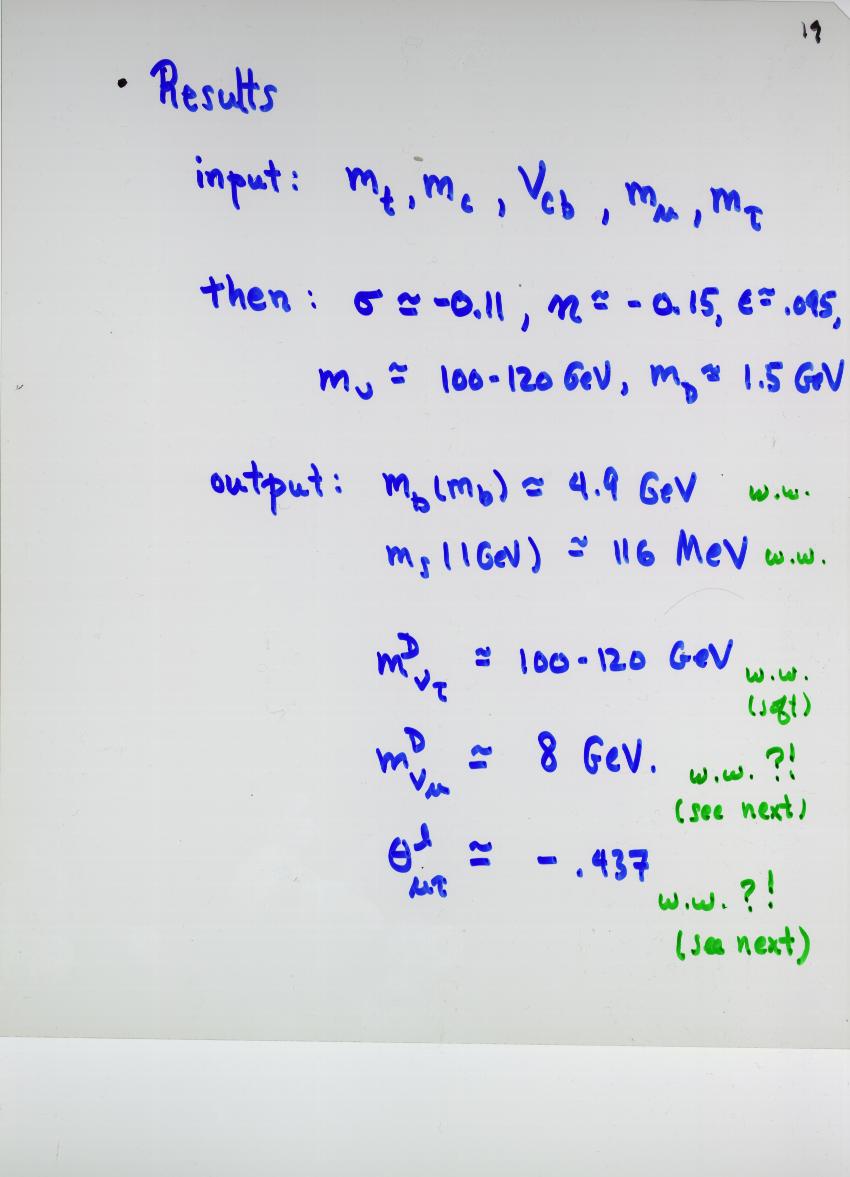 19
• Results
input: m_t, m_c, V_cb, m_μ, m_τ
then: σ ≃ -0.11, η ≃ -0.15, ε ≃ .095,
m_U ≃ 100-120 GeV, m_D ≃ 1.5 GeV
output: m_b(m_b) ≃ 4.9 GeV w.w.
m_s(1GeV) ≃ 116 MeV w.w.
m^D_ν_τ ≃ 100-120 GeV w.w.
(sqt)
m^D_ν_μ ≃ 8 GeV. w.w. ?!
(see next)
θ^l_μτ ≃ -.437
w.w. ?!
(see next)